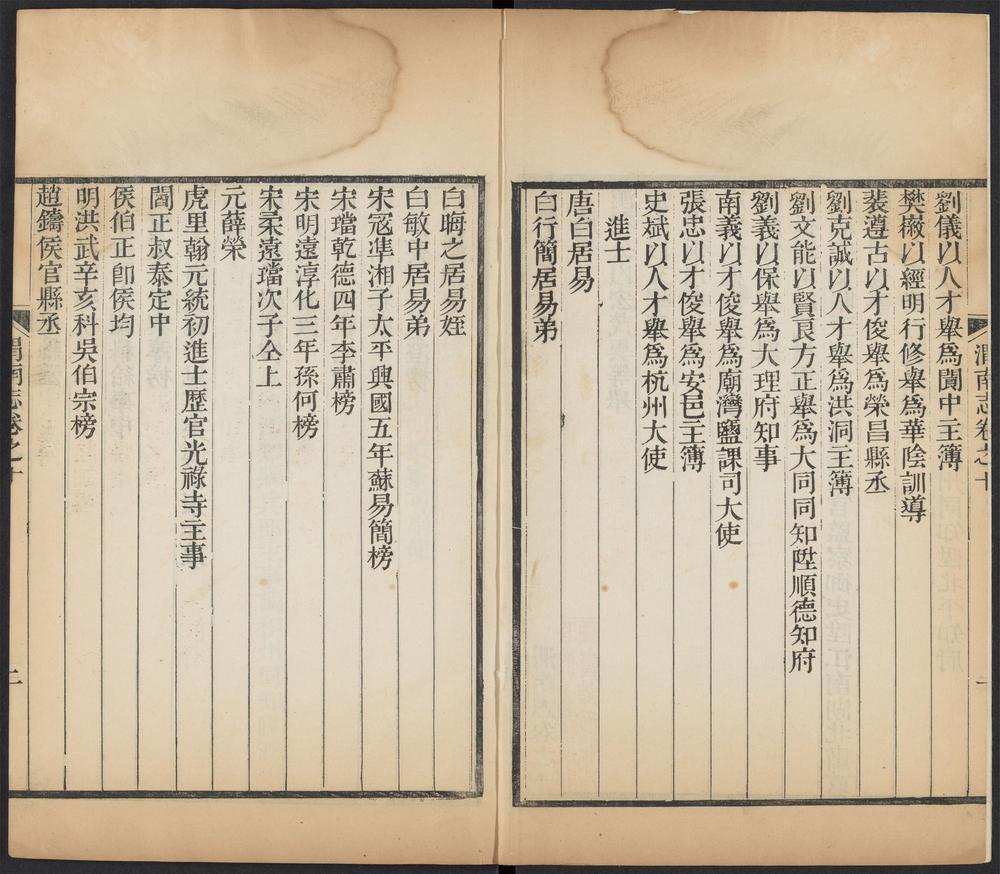 渭南志卷之十
一
劉儀以人才舉爲閬中主簿
樊巌以經明行修舉爲華陰訓導
裴遵古以才俊舉爲榮昌縣丞
劉克誠以人才舉爲洪洞主簿
劉文能以賢良方正舉爲大同同知陞順德知府
劉義以保舉爲大理府知事
南義以才俊舉爲廟灣鹽課司大使
張忠以才俊舉爲安邑主簿
史斌以人才舉爲杭州大使
進士
唐白居易
白行簡居易弟
白晦之居易姪
白敏中居易弟
宋寇準湘子太平興國五年蘇易簡榜
宋璫乾德四年李肅榜
宋明遠淳化三年孫何榜
宋柔遠璫次子仝上
元薛榮
虎里翰元統初進士歷官光祿寺主事
閻正叔泰定中
侯伯正卽侯均
明洪武辛亥科吳伯宗榜
趙鑄侯官縣丞
渭南志卷之十
二